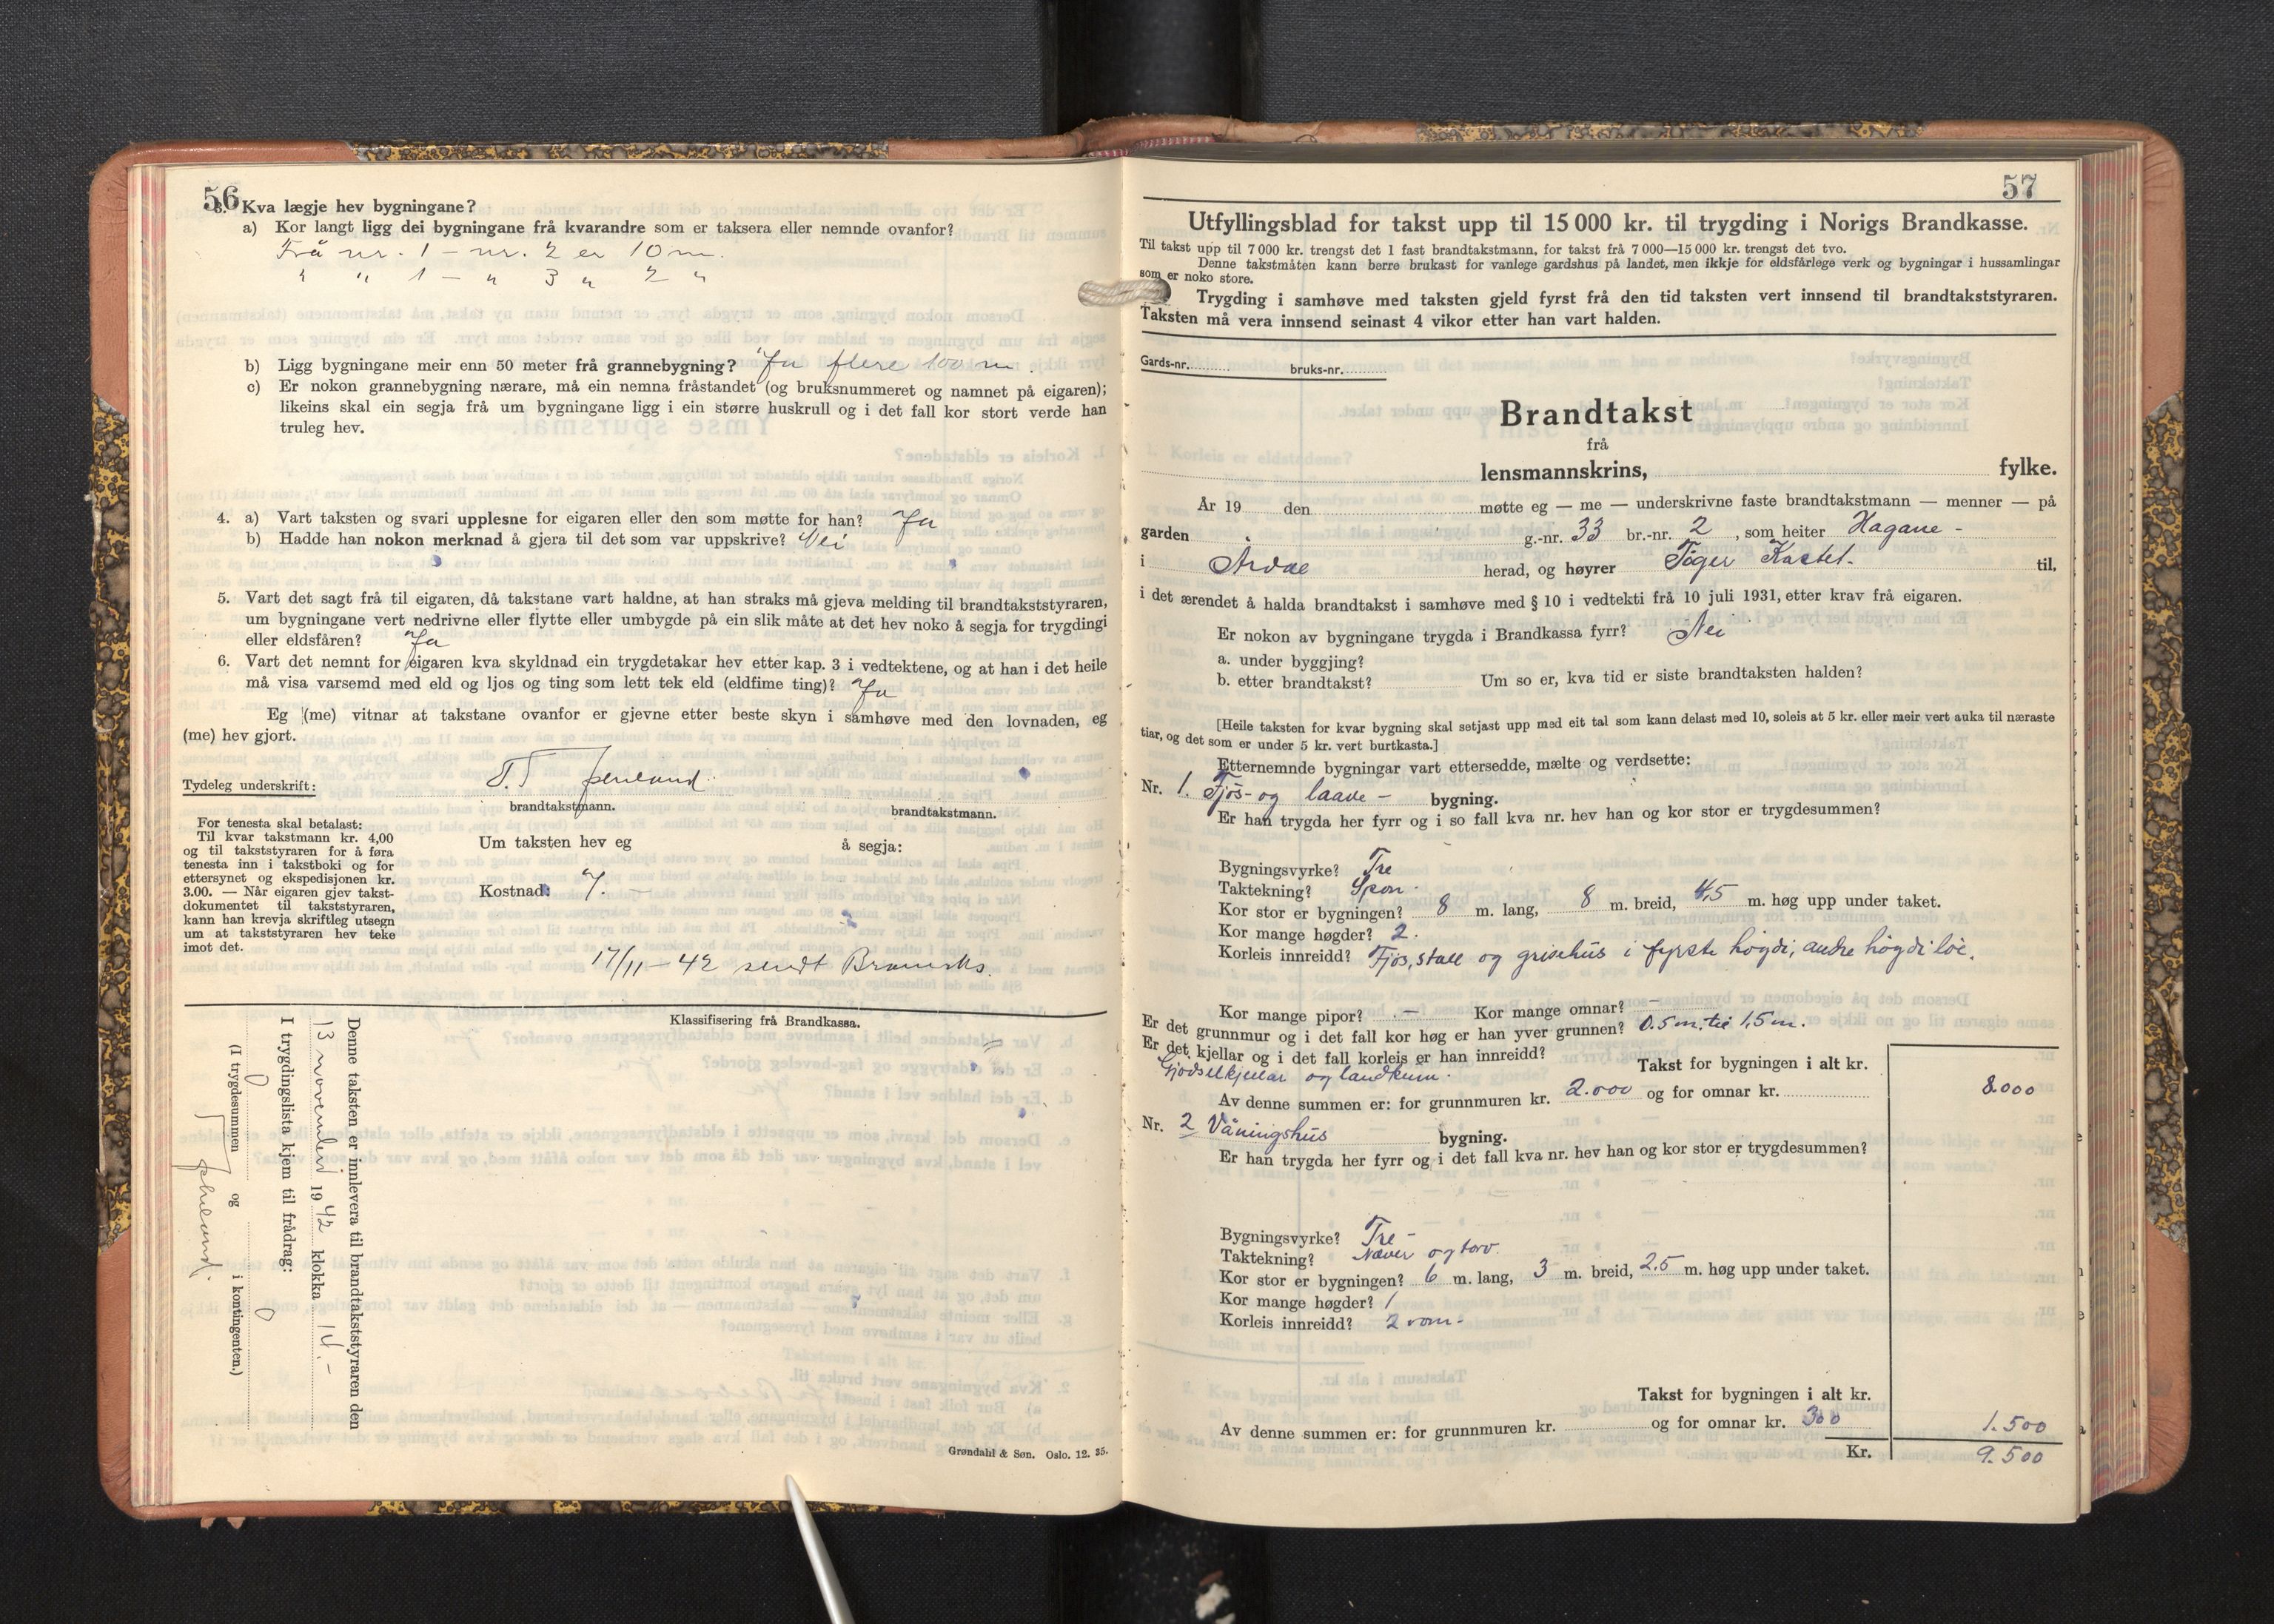 56
3. Kva lægje hev bygningane?
a) Kor langt ligg dei bygningane frå kvarandre som er taksera eller nemnde ovanfor?
Frå nr. 1 - nr. 2 er 10 m.
" " 1 - " 3 " 2 "
b) Ligg bygningane meir enn 50 meter frå grannebygning? Ja flere 100 m.
c) Er nokon grannebygning nærare, må ein nemna fråstandet (og bruksnummeret og namnet på eigaren);
likeins skal ein segja frå um bygningane ligg i ein større huskrull og i det fall kor stort verde han
truleg hev.
4. a) Vart taksten og svari upplesne for eigaren eller den som møtte for han? Ja
b) Hadde han nokon merknad å gjera til det som var uppskrive? Nei
5. Vart det sagt frå til eigaren, då takstane vart haldne, at han straks må gjeva melding til brandtakststyraren,
um bygningane vert nedrivne eller flytte eller umbygde på ein slik måte at det hev noko å segja for trygdingi
eller eldsfåren? Ja
6. Vart det nemnt for eigaren kva skyldnad ein trygdetakar hev etter kap. 3 i vedtektene, og at han i det heile
må visa varsemd med eld og ljos og ting som lett tek eld (eldfime ting)? Ja
Eg (me) vitnar at takstane ovanfor er gjevne etter beste skyn i samhøve med den lovnaden, eg
(me) hev gjort.
Tydeleg underskrift:
brandtakstmann. brandtakstmann.
For tenesta skal betalast:
Til kvar takstmann kr. 4,00
og til takststyraren for å føra
tenesta inn i takstboki og for
ettersynet og ekspedisjonen kr.
3.00. — Når eigaren gjev takst-
dokumentet til takststyraren,
kann han krevja skriftleg utsegn
um at takststyraren hev teke
imot det.
Um taksten hev eg å segja:
Kostnad: 7. -
17/11 - 42 sendt
Klassifisering frå Brandkassa.
Denne taksten er innlevera til brandtakststyraren den
13 november 1942 klokka 14.-
I trygdingslista kjem til frådrag:
0 0
(I trygdesummen og i kontingenten.)
Grøndahl & Søn. Oslo. 12. 35.
57
Utfyllingsblad for takst upp til 15 000 kr. til trygding i Norigs Brandkasse.
Til takst upp til 7 000 kr. trengst det 1 fast brandtakstmann, for takst frå 7 000—15 000 kr. trengst det tvo.
Denne takstmåten kann berre brukast for vanlege gardshus på landet, men ikkje for eldsfårlege verk og bygningar i hussamlingar
som er noko store.
Trygding i samhøve med taksten gjeld fyrst frå den tid taksten vert innsend til brandtakststyraren.
Taksten må vera innsend seinast 4 vikor etter han vart halden.
Gards-nr. bruks-nr.
Brandtakst
frå
lensmannskrins, fylke.
År 19 den møtte eg — me — underskrivne faste brandtakstmann — menner — på
garden g.-nr. 33 br.-nr. 2, som heiter Hagane -
i Årdal herad, og høyrer Tøger Kastet. til,
i det ærendet å halda brandtakst i samhøve med § 10 i vedtekti frå 10 juli 1931, etter krav frå eigaren.
Er nokon av bygningane trygda i Brandkassa fyrr? Nei
a. under byggjing?
b. etter brandtakst? Um so er, kva tid er siste brandtaksten halden?
[Heile taksten for kvar bygning skal setjast upp med eit tal som kann delast med 10, soleis at 5 kr. eller meir vert auka til næraste
tiar, og det som er under 5 kr. vert burtkasta.]
Etternemnde bygningar vart ettersedde, mælte og verdsette:
Nr. 1. Fjøs- og laave - bygning.
Er han trygda her fyrr og i so fall kva nr. hev han og kor stor er trygdesummen?
Bygningsvyrke? Tre
Taktekning? Spon.
Kor stor er bygningen? 8 m. lang, 8 m. breid, 4,5 m. høg upp under taket.
Kor mange høgder? 2.
Korleis innreidd? Fjøs, stall og grisehus i fyrste høgdi, andre høgdi løe.
Kor mange pipor? - Kor mange omnar? -
Er det grunnmur og i det fall kor høg er han yver grunnen? 0.5 m. til 1,5 m.
Er det kjellar og i det fall korleis er han innreidd?
Gjødselkjellar og landkum.
Takst for bygningen i alt kr. 8.000
Av denne summen er: for grunnmuren kr. 2.000 og for omnar kr.
Nr. 2 Våningshus bygning.
Er han trygda her fyrr og i det fall kva nr. hev han og kor stor er trygdesummen?
Bygningsvyrke? Tre -
Taktekning? Næver og torv.
Kor stor er bygningen? 6 m. lang, 3 m. breid, 2.5 m. høg upp under taket.
Kor mange høgder? 1
Korleis innreidd? 2 rom -
Takst for bygningen i alt kr. 1.500
Av denne summen er: for grunnmuren kr. og for omnar kr. 300
Kr. 9.500